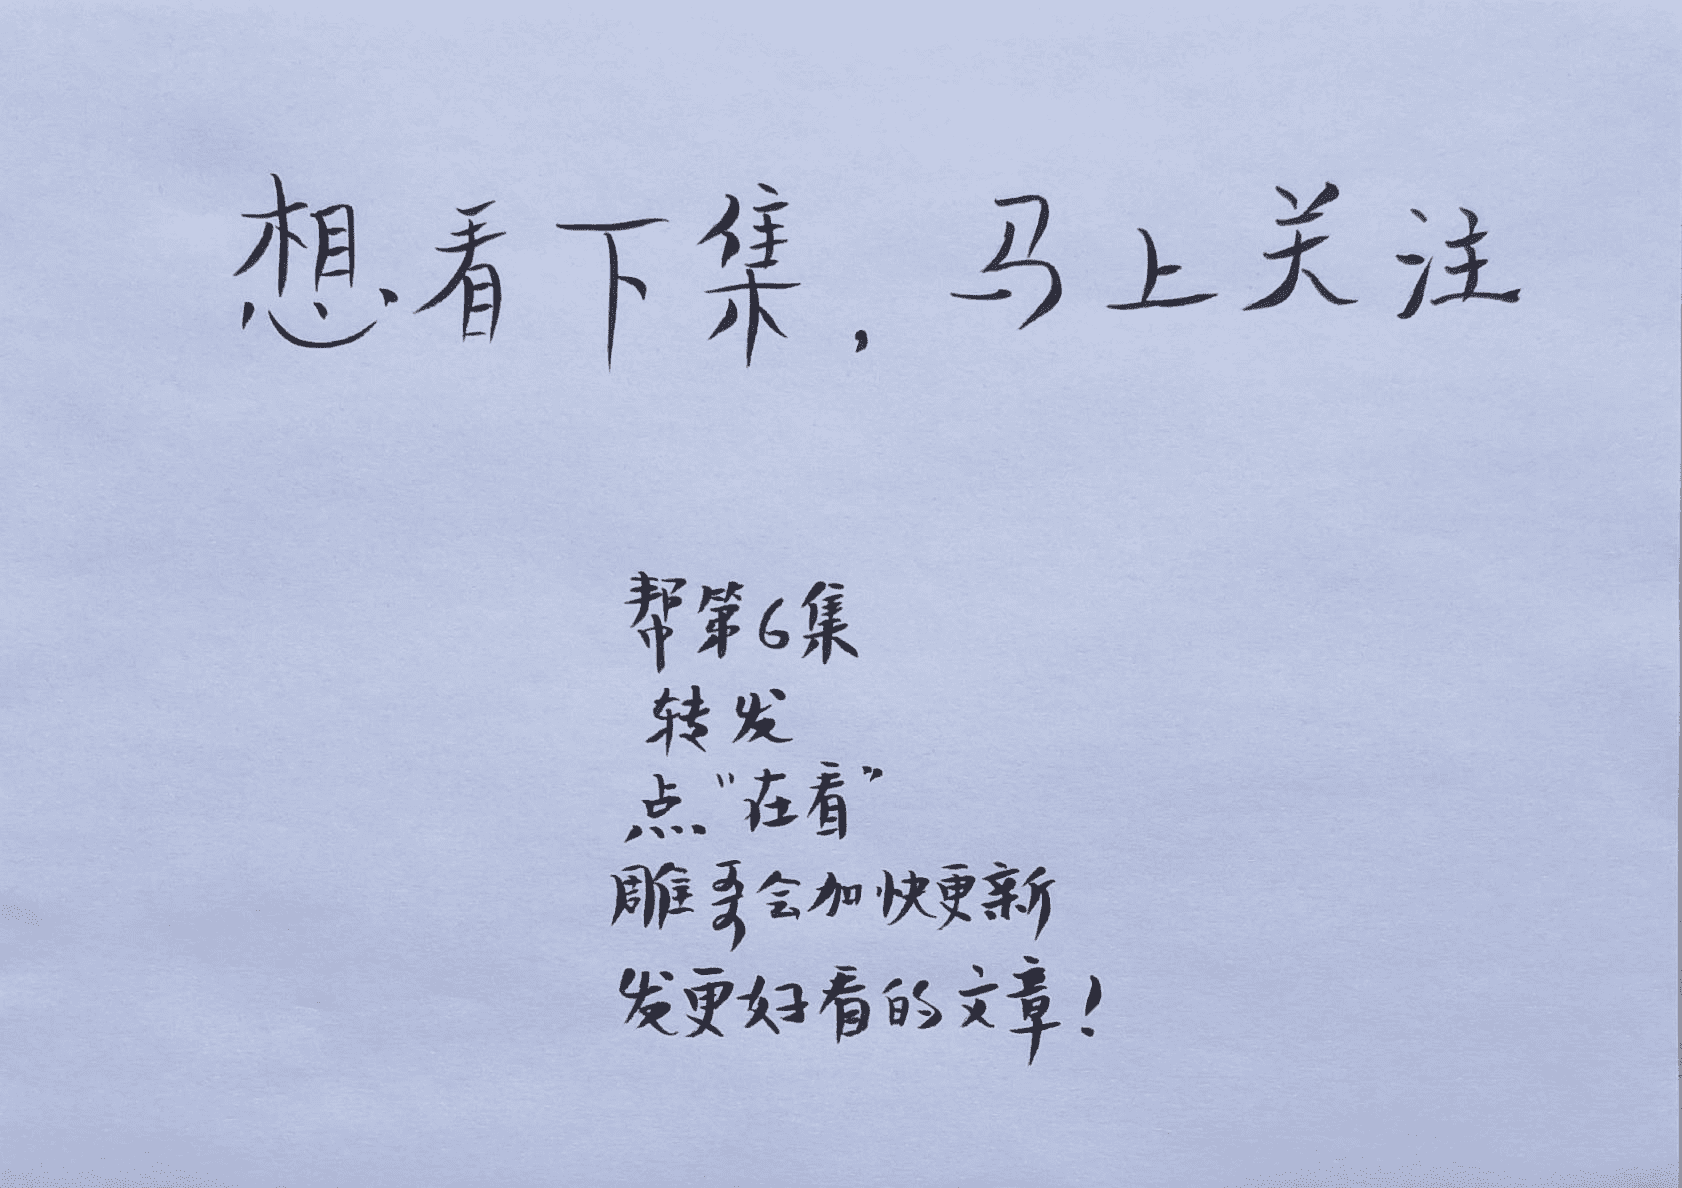 想看下集，马上关注
帮第6集
转发
点“在看”
雕哥会加快更新
发更好看的文章！